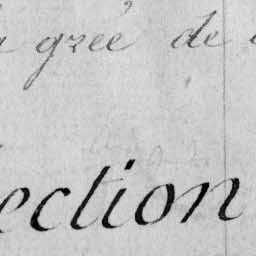 grée de
ection